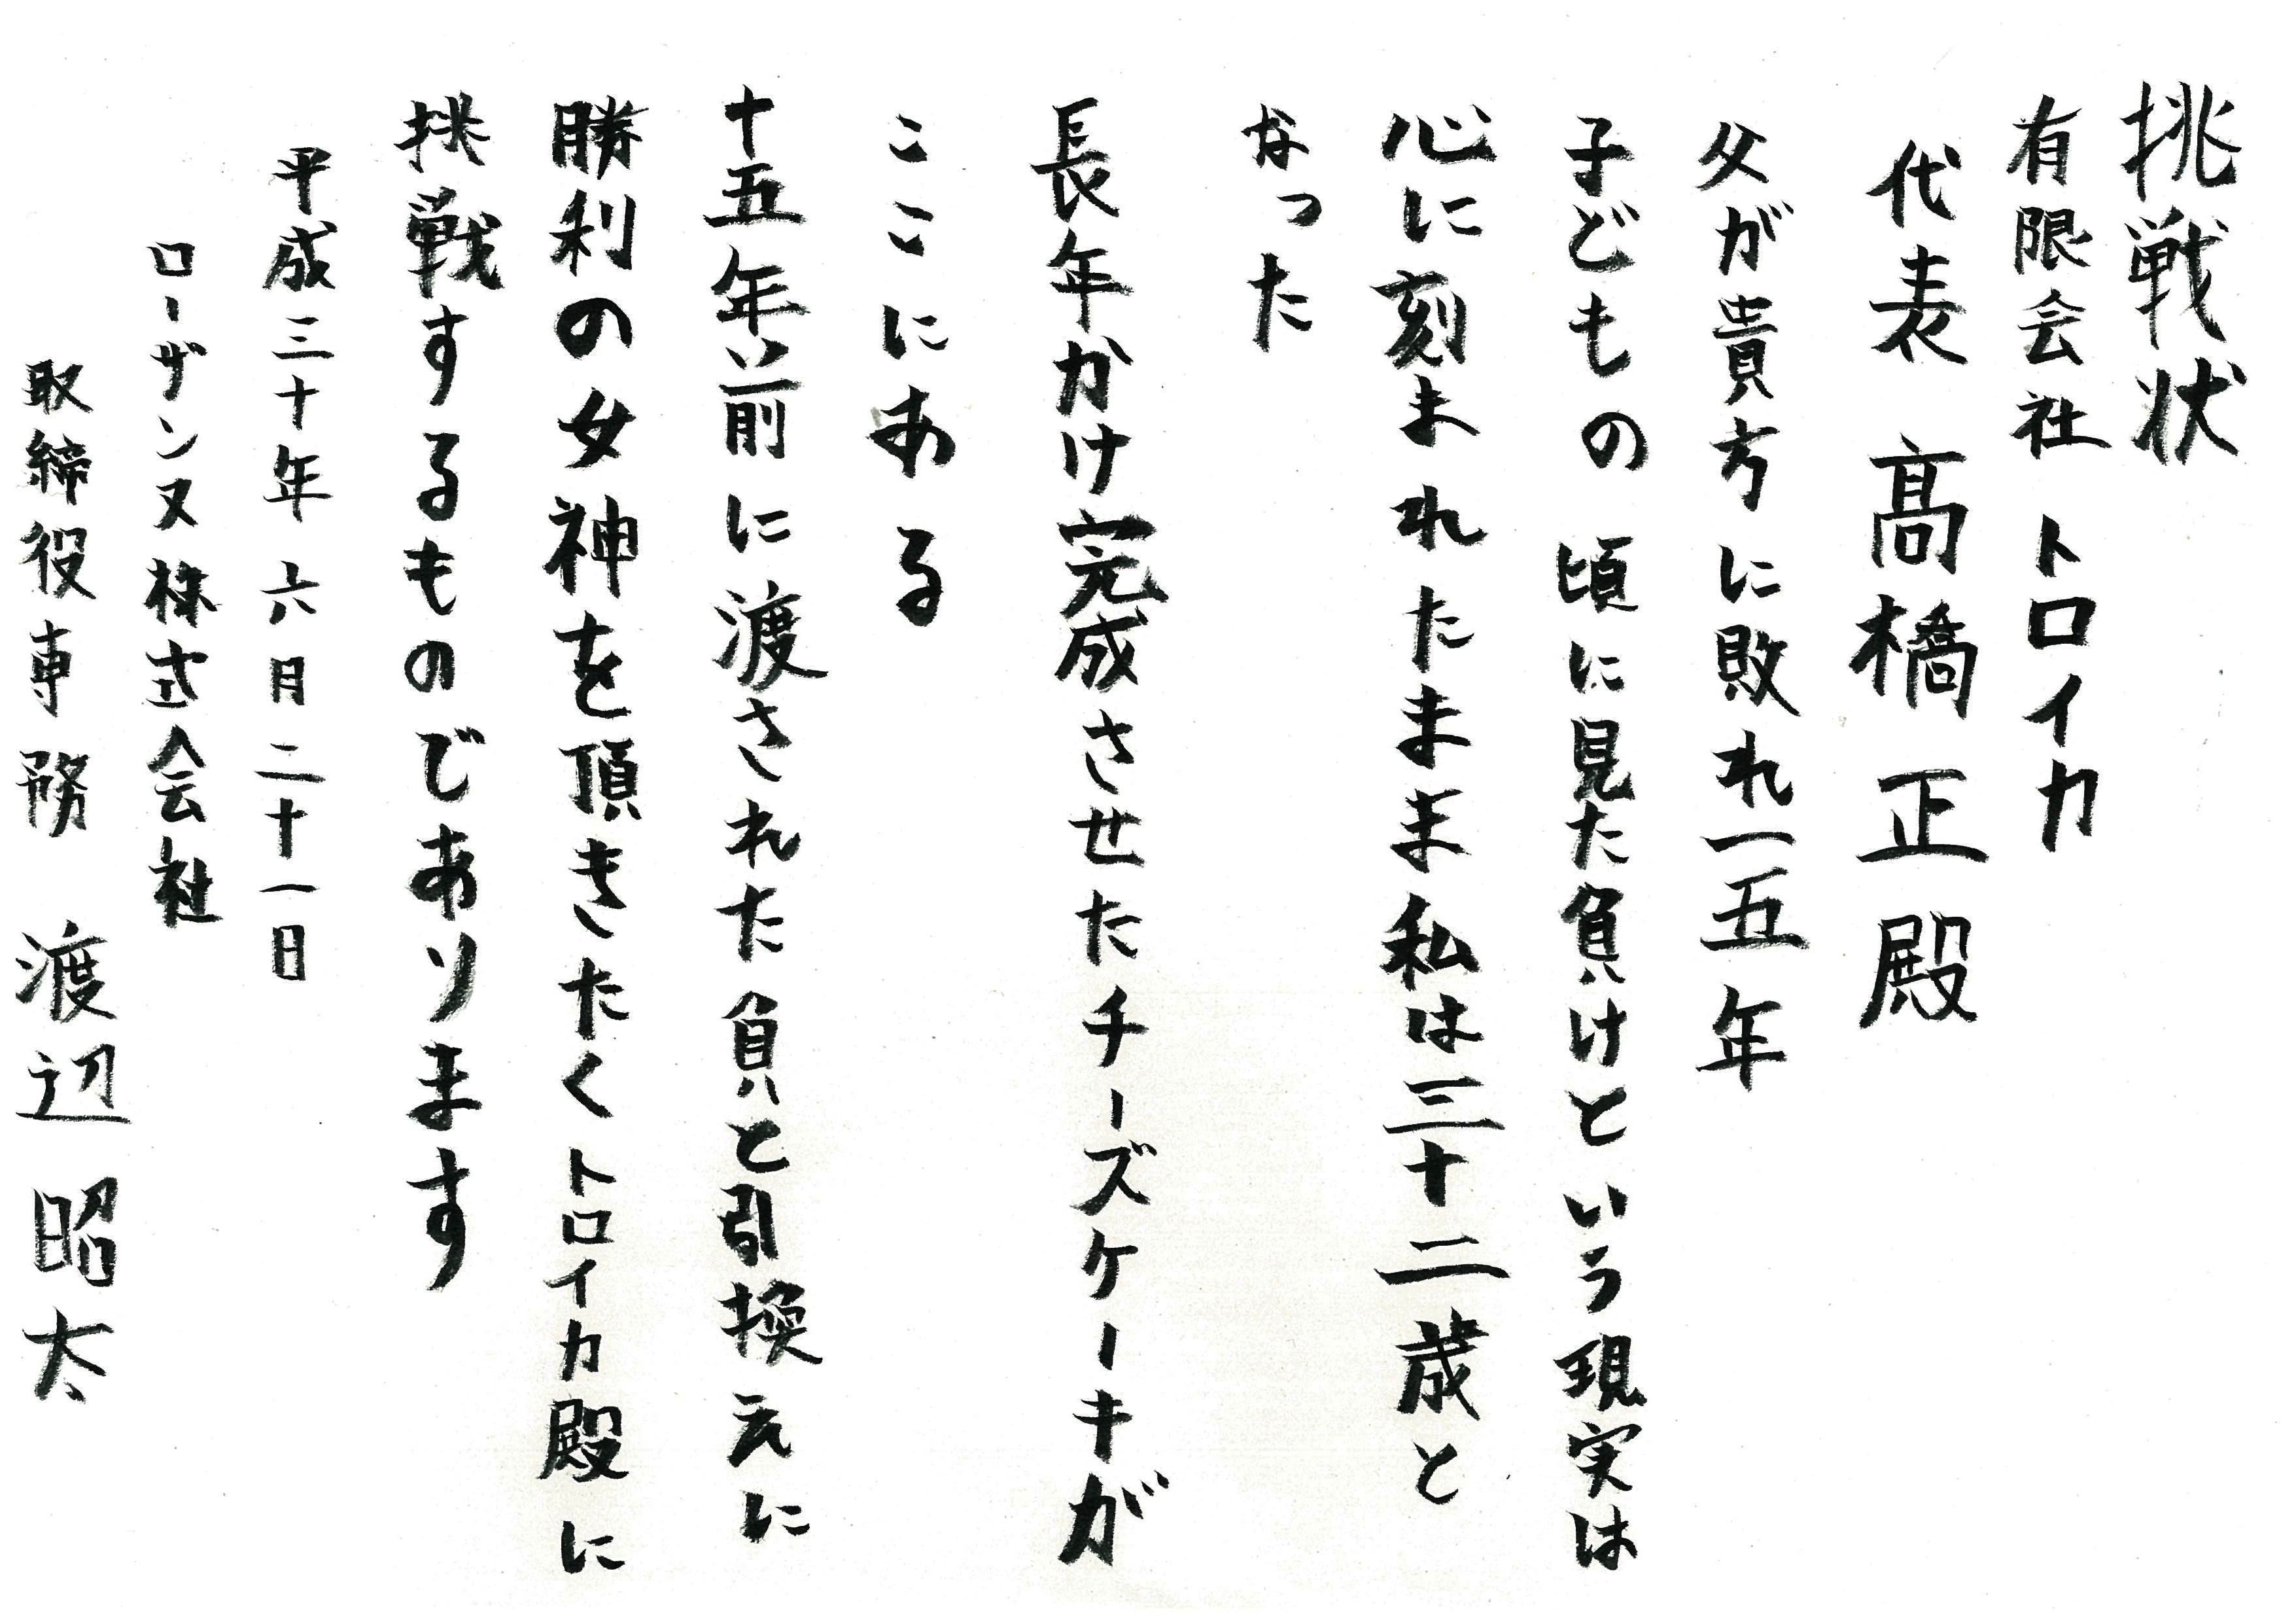 挑戦状
有限会社 トロイカ
代表 髙橋正殿
父が貴方に敗れ一五年
子どもの頃に見た負けという現実は
心に刻まれたまま私は三十二歳と
なった
長年かけ完成させたチーズケーキが
ここにある
十五年前に渡された負と引換えに
勝利の女神を頂きたくトロイカ殿に
挑戦するものであります
平成三十年六月二十一日
ローザンヌ株式会社
取締役専務 渡辺昭太